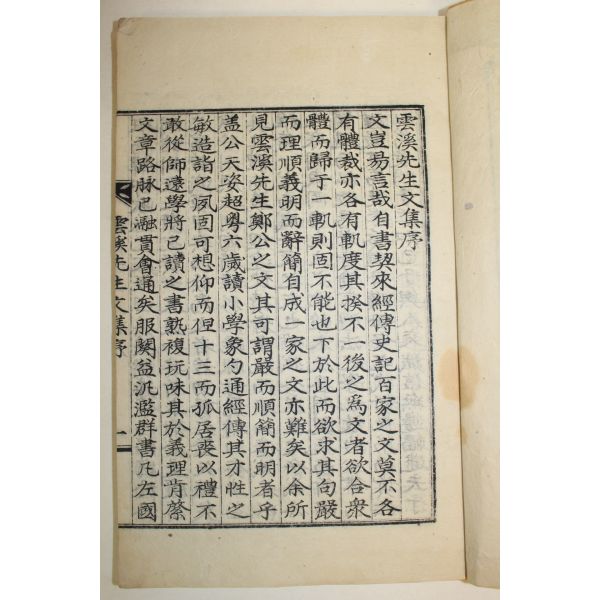 雲溪先生文集序
文豈易言哉自書契來經傳史記百家之文莫不各
有體裁亦各有軌度其揆不一後之爲文者欲合衆
體而歸于一軌則固不能也下於此而欲求其句嚴
而理順義明而辭簡自成一家之文亦難矣以余所
見雲溪先生鄭公之文其可謂嚴而順簡而明者乎
盖公天姿超粤六歲讀小學象勺通經傳其才性之
敏造詣之夙固可想仰而但十三而孤居喪以禮不
敢從師遠學將已讀之書熟複玩味其於義理肯綮
文章路脉已融貫會通矣服闋益汎濫群書凡左國
雲溪先生文集序
一